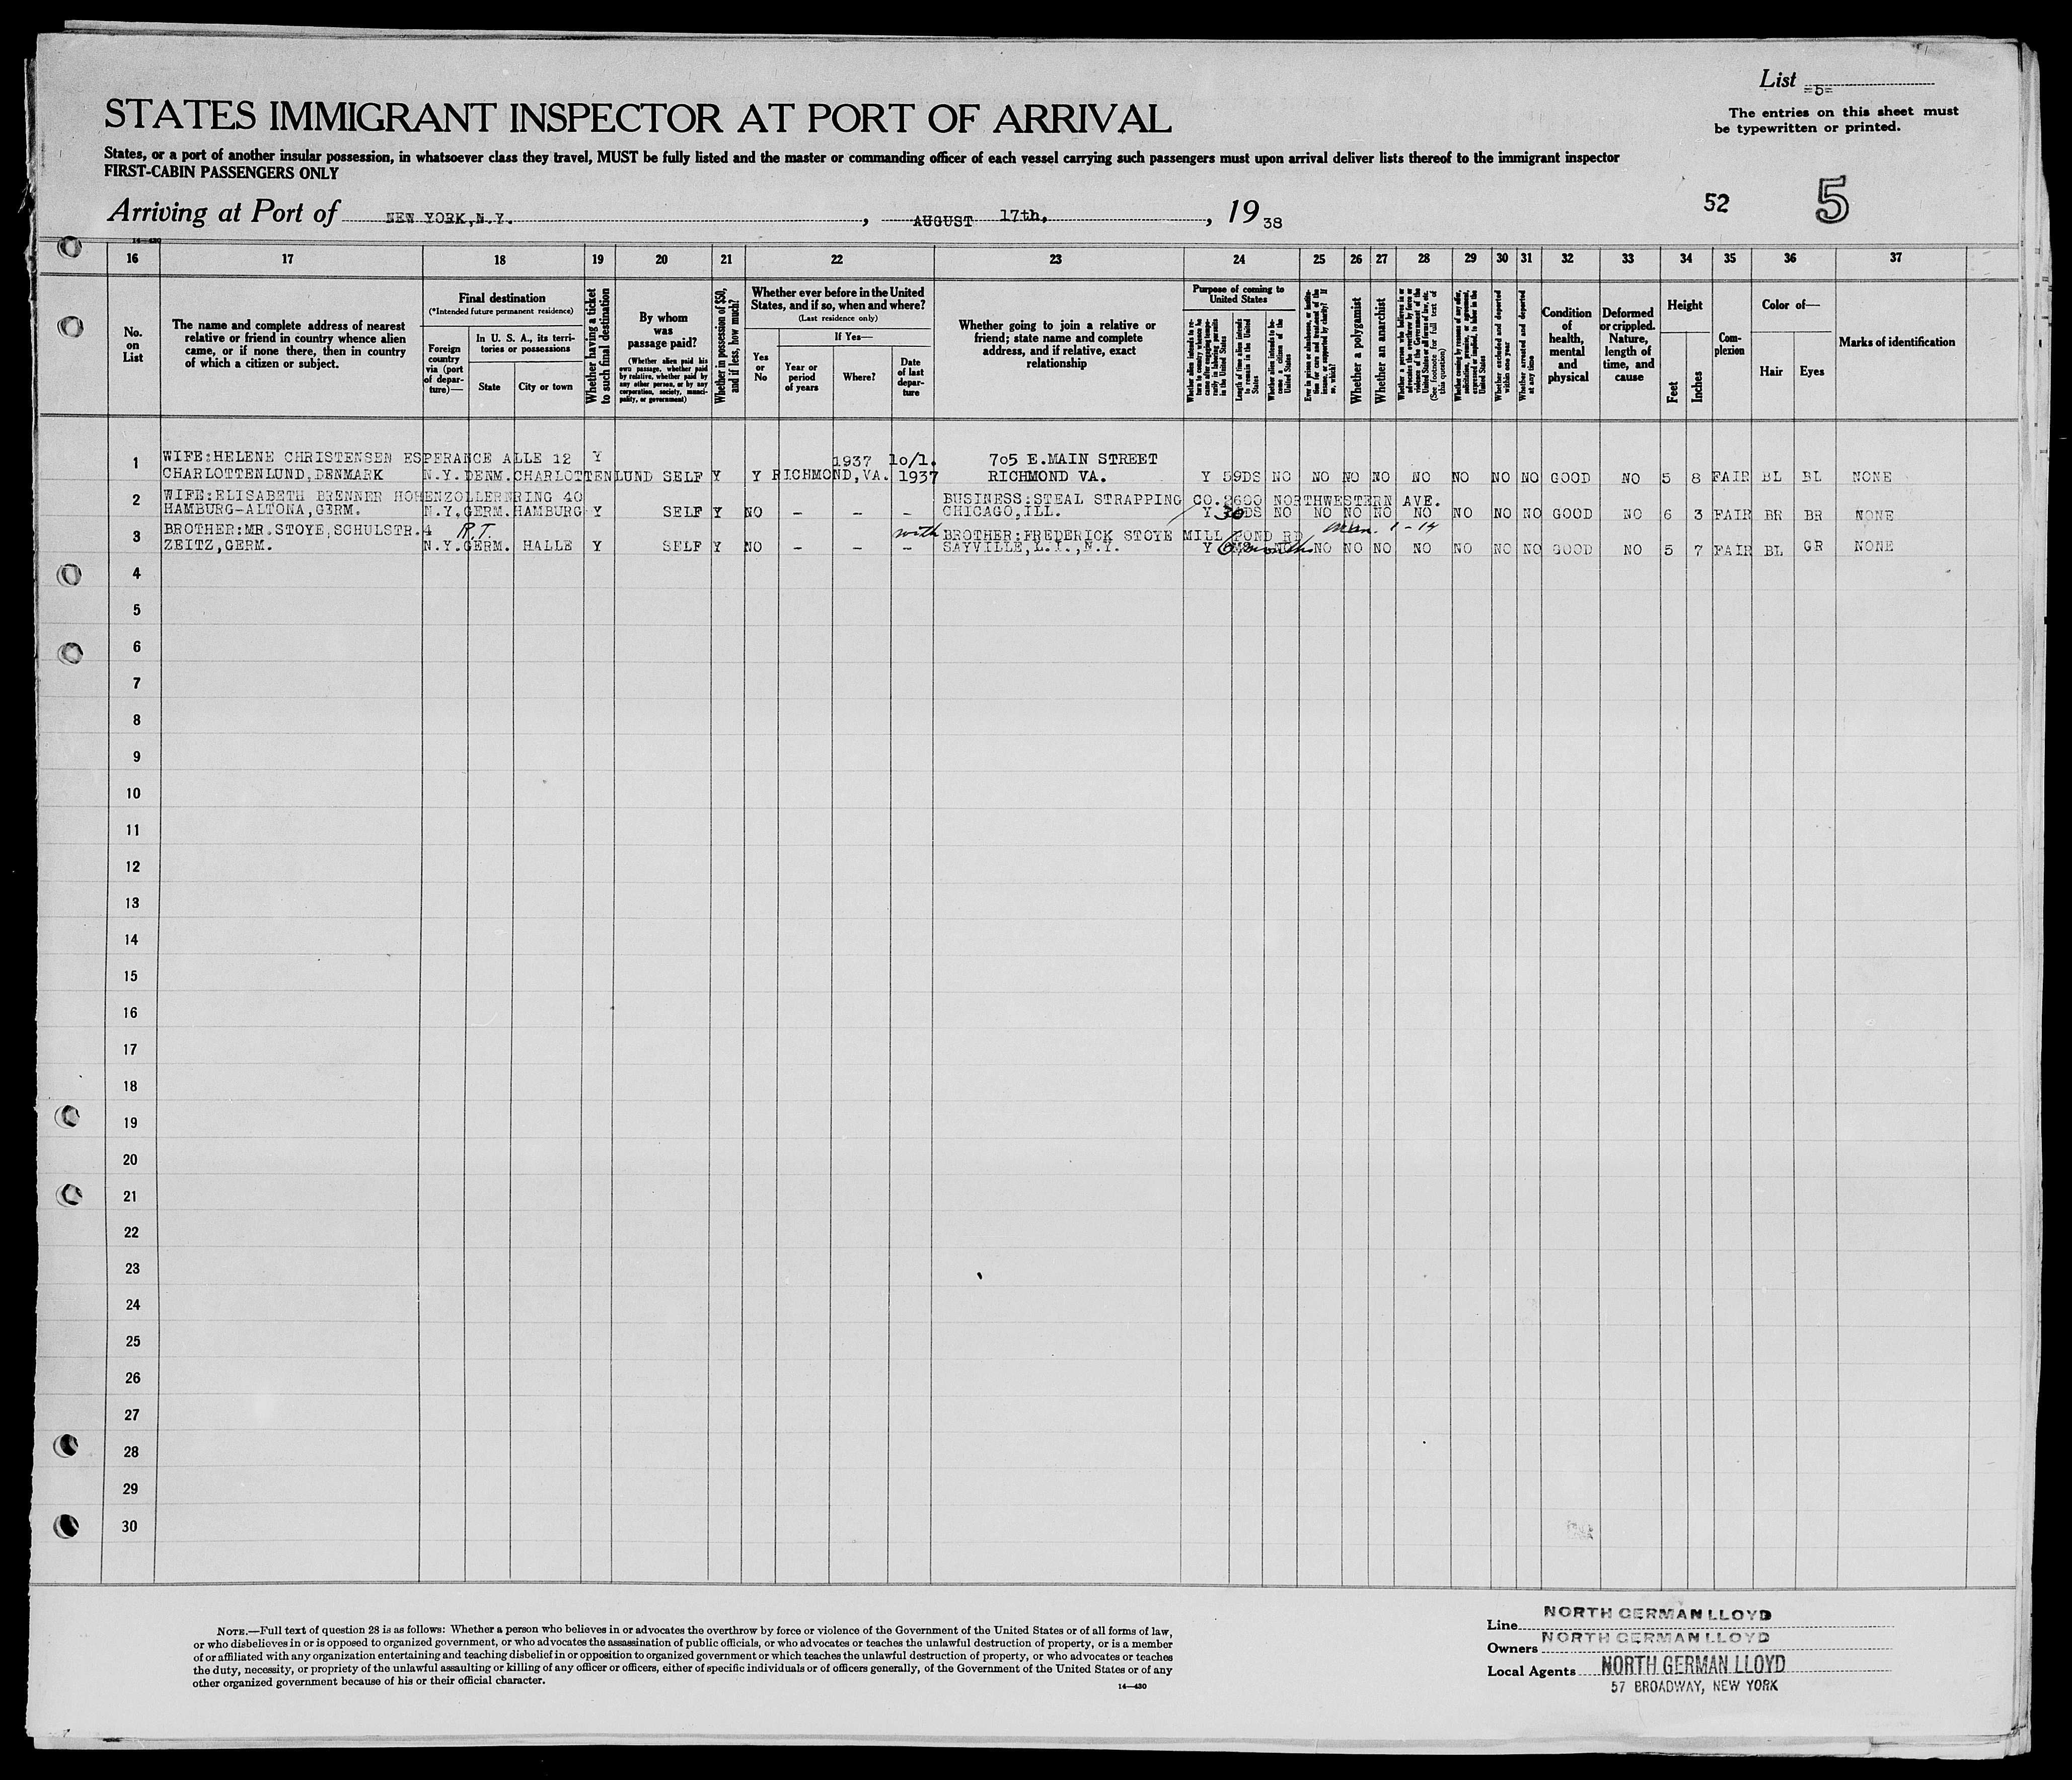 List -5-
The entries on this sheet must
be typewritten or printed.
STATES IMMIGRANT INSPECTOR AT PORT OF ARRIVAL
States, or a port of another insular possession, in whatsoever class they travel, MUST be fully listed and the master or commanding officer of each vessel carrying such passengers must upon arrival deliver lists thereof to the immigrant inspector
FIRST-CABIN PASSENGERS ONLY
Arriving at Port of NEW YORK,N.Y. , AUGUST 17th, , 1938
52 5
14-430
16 17 18 19 20 21 22 23 24 25 26 27 28 29 30 31 32 33 34 35 36 37
No.
on
List
The name and complete address of nearest
relative or friend in country whence alien
came, or if none there, then in country
of which a citizen or subject.
Final destination
(*Intended future permanent residence)
Foreign
country
via (port
of depar-
ture)—
In U. S. A., its terri-
tories or possessions
State
City or town
Whether having a ticket
to such final destination
By whom
was
passage paid?
(Whether alien paid his
own passage, whether paid
by relative, whether paid by
any other person, or by any
corporation, society, munici-
pality, or government)
Whether in possession of $50,
and if less, how much?
Whether ever before in the United
States, and if so, when and where?
(Last residence only)
Yes
or
No
If Yes—
Year or
period
of years
Where?
Date
of last
depar-
ture
Whether going to join a relative or
friend; state name and complete
address, and if relative, exact
relationship
Purpose of coming to
United States
Whether alien intends to re-
turn to country whence he
came after engaging tempo-
rarily in laboring pursuits
in the United States
Length of time alien intends
to remain in the United
States
Whether alien intends to be-
come a citizen of the
United States
Ever in prison or almshouse, or institu-
tion for care and treatment of the
insane, or supported by charity? If
so, which?
Whether a polygamist
Whether an anarchist
Whether a person who believes in or
advocates the overthrow by force or
violence of the Government of the
United States or all forms of law, etc.
(See footnote for full text of
this question)
Whether coming by reason of any offer,
solicitation, promise, or agreement,
expressed or implied, to labor in the
United States
Whether excluded and deported
within one year
Whether arrested and deported
at any time
Condition
of
health,
mental
and
physical
Deformed
or crippled.
Nature,
length of
time, and
cause
Height
Feet
Inches
Com-
plexion
Color of—
Hair
Eyes
Marks of identification
1 WIFE:HELENE CHRISTENSEN ESPERANCE ALLE 12 Y 1937 10/1. 705 E.MAIN STREET
CHARLOTTENLUND,DENMARK N.Y. DENM. CHARLOTTENLUND SELF Y Y RICHMOND,VA. 1937 RICHMOND VA. Y 59DS NO NO NO NO NO NO NO NO GOOD NO 5 8 FAIR BL BL NONE
2 WIFE:ELISABETH BRENNER HOHENZOLLERNRING 40 BUSINESS:STEAL STRAPPING CO.2600 NORTHWESTERN AVE.
HAMBURG-ALTONA,GERM. N.Y. GERM. HAMBURG Y SELF Y NO - - - CHICAGO,ILL. Y 30 DS NO NO NO NO NO NO NO NO GOOD NO 6 3 FAIR BR BR NONE
3 BROTHER:MR.STOYE,SCHULSTR.4 R.T. with BROTHER:FREDERICK STOYE MILL POND RD 1-14
ZEITZ,GERM. N.Y. GERM. HALLE Y SELF Y NO - - - SAYVILLE,L.I.,N.Y. Y 6 months NO NO NO NO NO NO NO GOOD NO 5 7 FAIR BL GR NONE
4
5
6
7
8
9
10
11
12
13
14
15
16
17
18
19
20
21
22
23
24
25
26
27
28
29
30
NOTE.—Full text of question 28 is as follows: Whether a person who believes in or advocates the overthrow by force or violence of the Government of the United States or of all forms of law,
or who disbelieves in or is opposed to organized government, or who advocates the assassination of public officials, or who advocates or teaches the unlawful destruction of property, or is a member
of or affiliated with any organization entertaining and teaching disbelief in or opposition to organized government or which teaches the unlawful destruction of property, or who advocates or teaches
the duty, necessity, or propriety of the unlawful assaulting or killing of any officer or officers, either of specific individuals or of officers generally, of the Government of the United States or of any
other organized government because of his or their official character.
14-430
Line NORTH GERMAN LLOYD
Owners NORTH GERMAN LLOYD
Local Agents NORTH GERMAN LLOYD
57 BROADWAY, NEW YORK